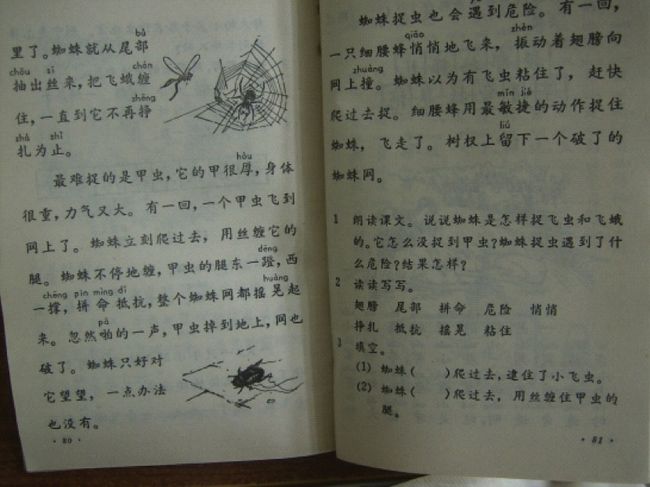 里了。蜘蛛就从尾部
bù
chōu sī chán
抽出丝来,把飞蛾缠
zhēng
住,一直到它不再挣
zhá zhǐ
扎为止。
hòu
最难捉的是甲虫,它的甲很厚,身体
很重,力气又大。有一回,一个甲虫飞到
网上了。蜘蛛立刻爬过去,用丝缠它的
dēng
腿。蜘蛛不停地缠,甲虫的腿东一蹬,西
chēng pīn mìng dǐ huàng
一撑,拼命抵抗,整个蜘蛛网都摇晃起
pā
来。忽然啪的一声,甲虫掉到地上,网也
破了。蜘蛛只好对
它望望,一点办法
也没有。
·80·
蜘蛛捉虫也会遇到危险。有一回,
qiāo zhèn
一只细腰蜂悄悄地飞来,振动着翅膀向
zhuàng
网上撞。蜘蛛以为有飞虫粘住了,赶快
mǐn jié
爬过去捉。细腰蜂用最敏捷的动作捉住
liú
蜘蛛,飞走了。树杈上留下一个破了的
蜘蛛网。
1 朗读课文。说说蜘蛛是怎样捉飞虫和飞蛾
的。它怎么没捉到甲虫?蜘蛛捉虫遇到了什
么危险?结果怎样?
2 读读写写。
翅膀 尾部 拼命 危险 悄悄
挣扎 抵抗 摇晃 粘住
3 填空。
(1) 蜘蛛( )爬过去,逮住了小飞虫。
(2) 蜘蛛( )爬过去,用丝缠住甲虫的
腿。
·81·